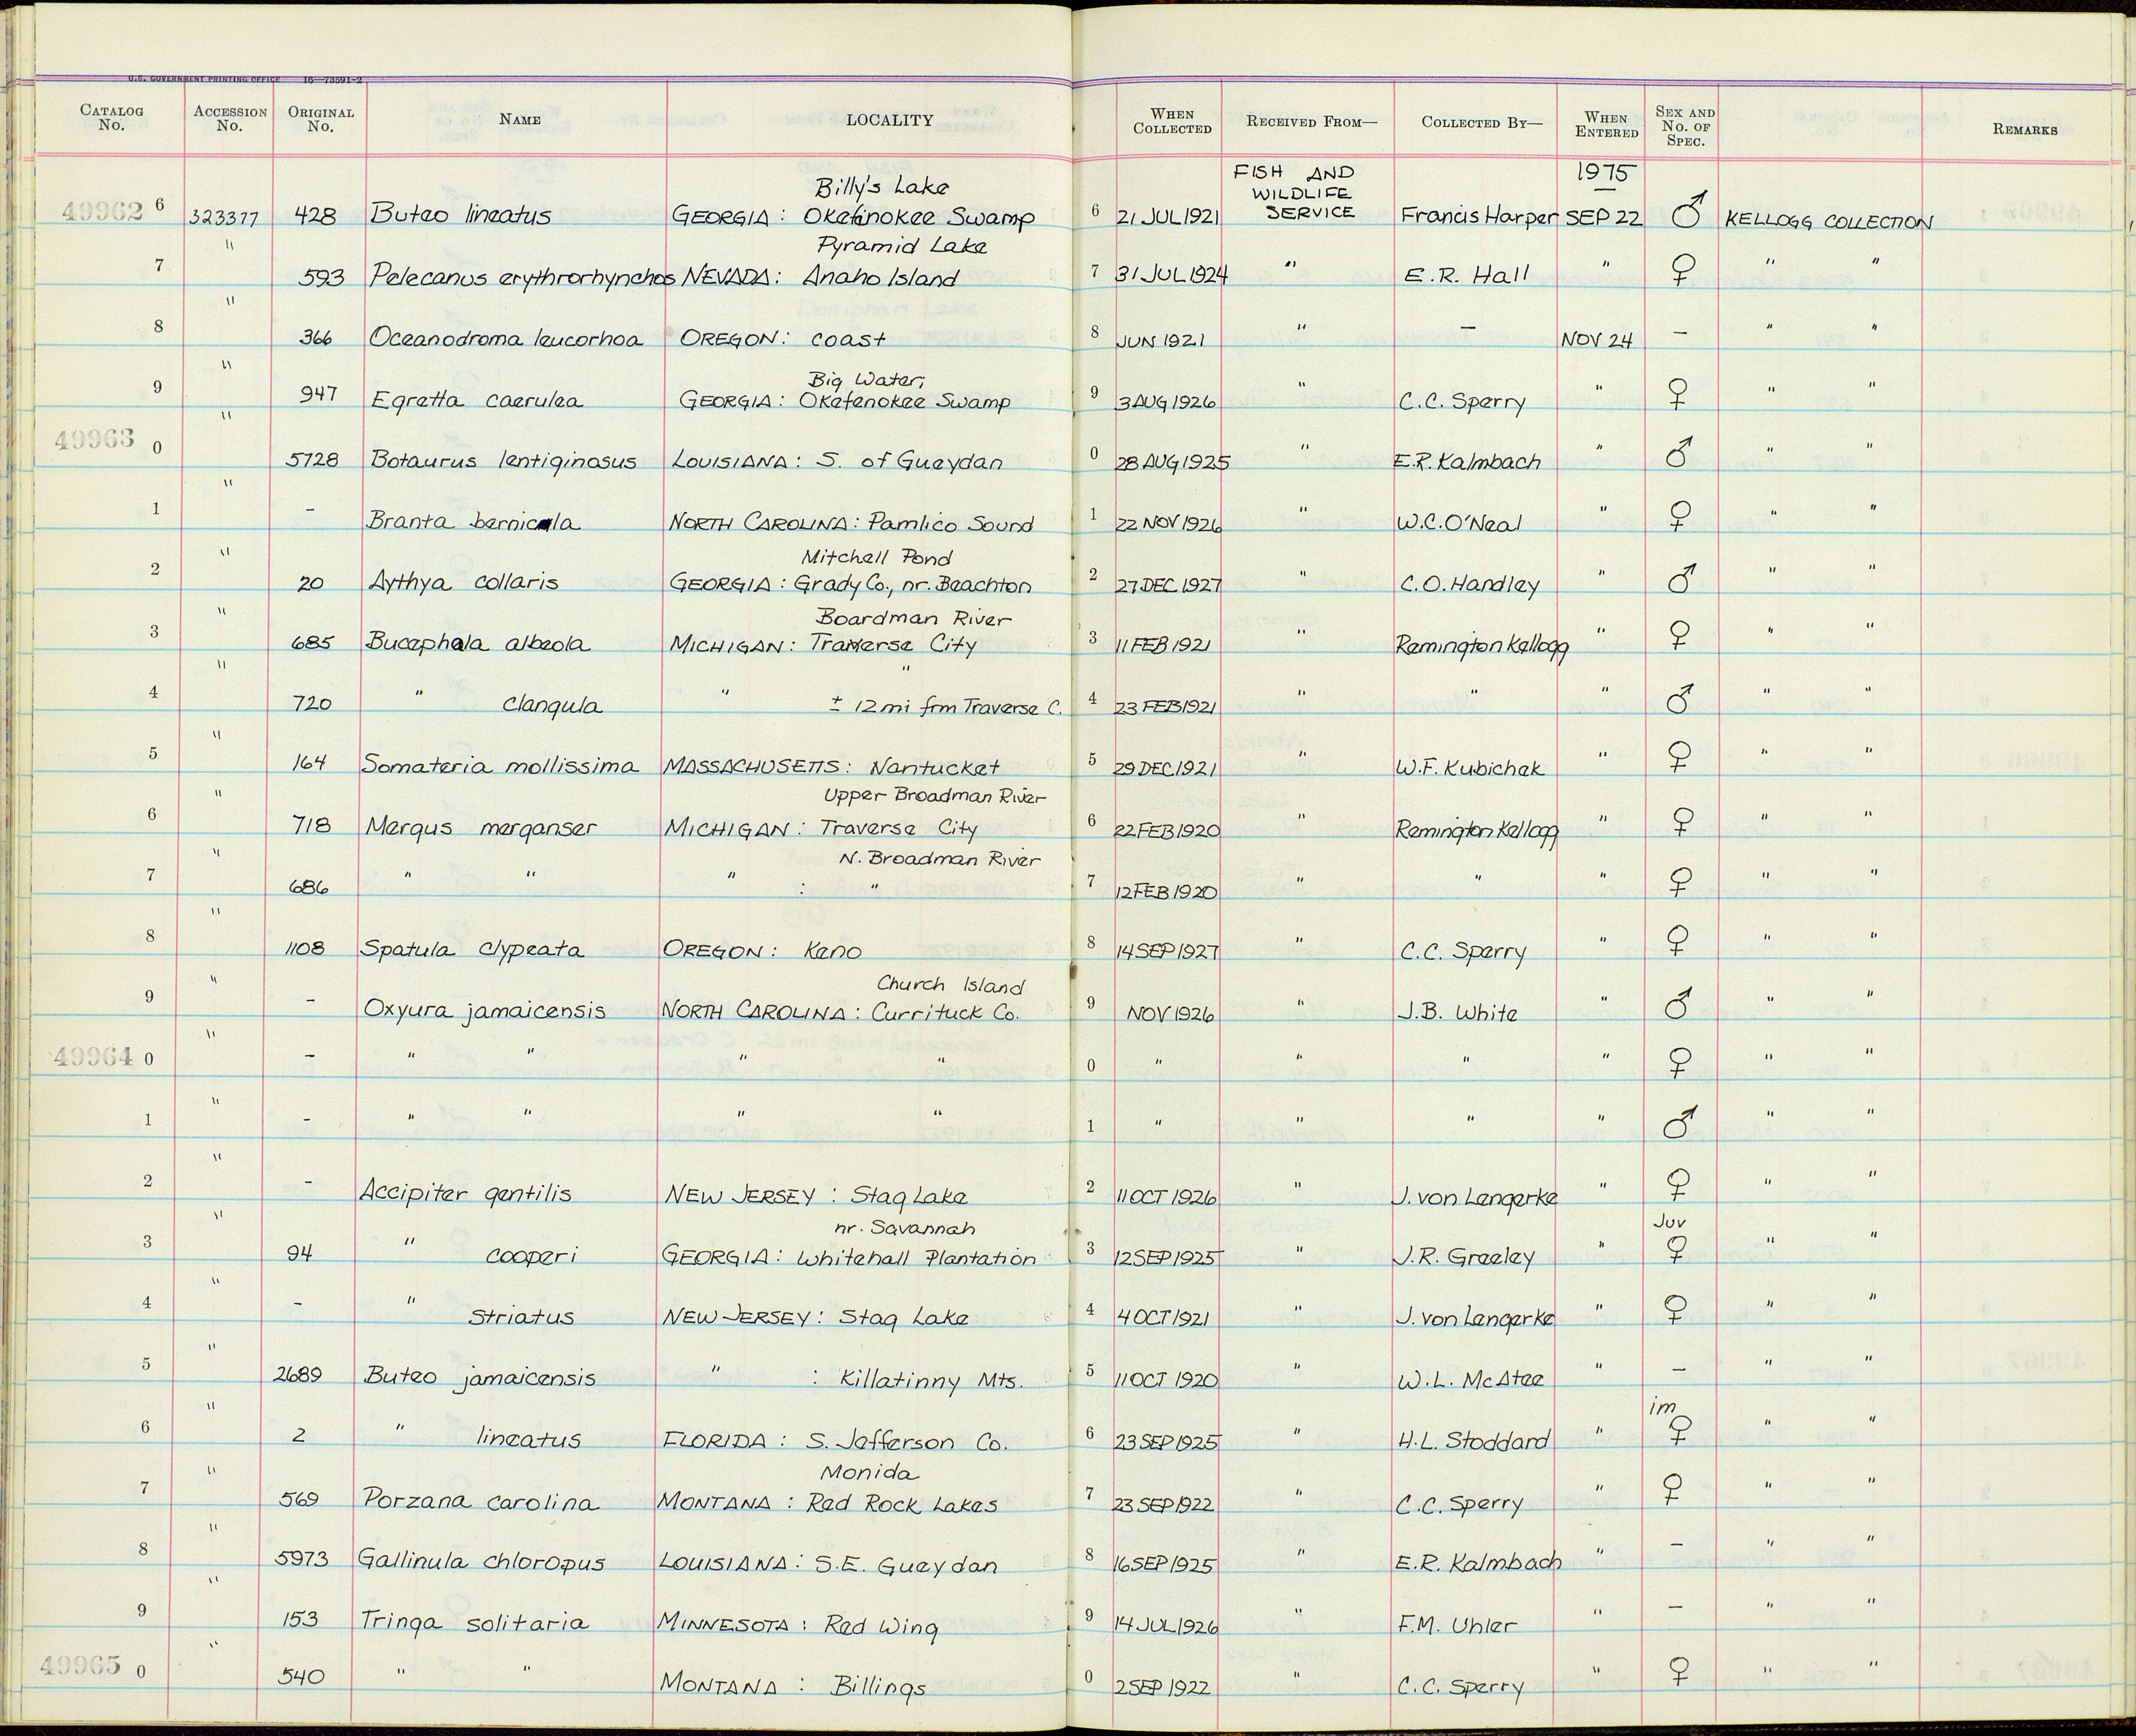 U.S. GOVERNMENT PRINTING OFFICE 16—73591-2
CATALOG No. ACCESSION No. ORIGINAL No. NAME LOCALITY WHEN COLLECTED RECEIVED FROM— COLLECTED BY— WHEN ENTERED SEX AND No. OF SPEC. REMARKS
Billy's Lake FISH AND WILDLIFE SERVICE 1975
49962 6 323377 428 Buteo lineatus GEORGIA: Okefinokee Swamp 6 21 JUL 1921 Francis Harper SEP 22 ♂ KELLOGG COLLECTION
Pyramid Lake
7 " 593 Pelecanus erythrorhynchos NEVADA: Anaho Island 7 31 JUL 1924 " E.R. Hall " ♀ " "
8 " 366 Oceanodroma leucorhoa OREGON: coast 8 JUN 1921 " — NOV 24 — " "
Big Water;
9 " 947 Egretta caerulea GEORGIA: Okefenokee Swamp 9 3 AUG 1926 " C.C. Sperry " ♀ " "
49963 0 " 5728 Botaurus lentiginosus LOUISIANA: S. of Gueydan 0 28 AUG 1925 " E.R. Kalmbach " ♂ " "
1 " - Branta bernicla NORTH CAROLINA: Pamlico Sound 1 22 NOV 1926 " W.C. O'Neal " ♀ " "
Mitchell Pond
2 " 20 Aythya collaris GEORGIA: Grady Co., nr. Beachton 2 27 DEC 1927 " C.O. Handley " ♂ " "
Boardman River
3 " 685 Bucephala albeola MICHIGAN: Traverse City 3 11 FEB 1921 " Remington Kellogg " ♀ " "
"
4 " 720 " clangula " ± 12 mi frm Traverse C. 4 23 FEB 1921 " " " ♂ " "
5 " 164 Somateria mollissima MASSACHUSETTS: Nantucket 5 29 DEC 1921 " W.F. Kubichek " ♀ " "
Upper Broadman River
6 " 718 Mergus merganser MICHIGAN: Traverse City 6 22 FEB 1920 " Remington Kellogg " ♀ " "
N. Broadman River
7 " 686 " " " : " 7 12 FEB 1920 " " " ♀ " "
8 " 1108 Spatula clypeata OREGON: Keno 8 14 SEP 1927 " C.C. Sperry " ♀ " "
Church Island
9 " - Oxyura jamaicensis NORTH CAROLINA: Currituck Co. 9 NOV 1926 " J.B. White " ♂ " "
49964 0 " - " " " " 0 " " " " ♀ " "
1 " - " " " " 1 " " " " ♂ " "
2 " - Accipiter gentilis NEW JERSEY: Stag Lake 2 11 OCT 1926 " J. von Lengerke " ♀ " "
nr. Savannah Juv
3 " 94 " cooperi GEORGIA: Whitehall Plantation 3 12 SEP 1925 " J.R. Greeley " ♀ " "
4 " - " striatus NEW JERSEY: Stag Lake 4 4 OCT 1921 " J. von Lengerke " ♀ " "
5 " 2689 Buteo jamaicensis " : Killatinny Mts. 5 11 OCT 1920 " W.L. McAtee " — " "
im
6 " 2 " lineatus FLORIDA: S. Jefferson Co. 6 23 SEP 1925 " H.L. Stoddard " ♀ " "
Monida
7 " 569 Porzana carolina MONTANA: Red Rock Lakes 7 23 SEP 1922 " C.C. Sperry " ♀ " "
8 " 5973 Gallinula chloropus LOUISIANA: S.E. Gueydan 8 16 SEP 1925 " E.R. Kalmbach " — " "
9 " 153 Tringa solitaria MINNESOTA: Red Wing 9 14 JUL 1926 " F.M. Uhler " — " "
49965 0 " 540 " " MONTANA: Billings 0 2 SEP 1922 " C.C. Sperry " ♀ " "